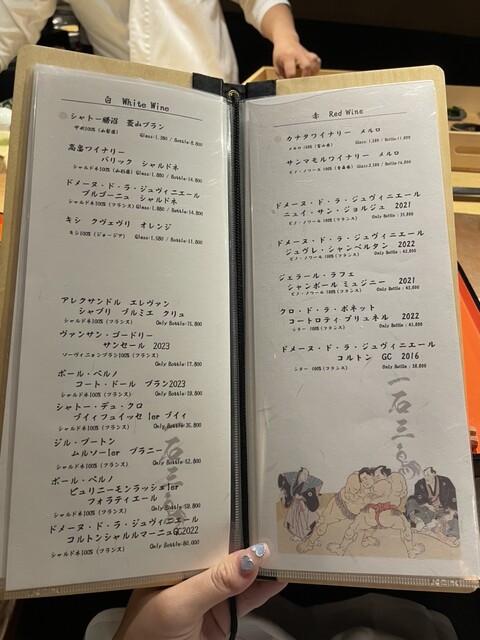 白 White Wine
シャトー勝沼 菱山ブラン
甲州100% (山梨県) Glass:1,380 / Bottle:8,800
高畠ワイナリー
バリック シャルドネ
シャルドネ100% (山形県) Glass:1,880 / Bottle:14,800
ドメーヌ・ド・ラ・ジュヴィニエール
ブルゴーニュ シャルドネ
シャルドネ100% (フランス) Glass:1,880 / Bottle:14,800
キシ クヴェヴリ オレンジ
キシ100% (ジョージア) Glass:1,580 / Bottle:11,800
アレクサンドル エレヴァン
シャブリ プルミエ クリュ
シャルドネ100% (フランス) Only Bottle:21,800
ヴァンサン・ゴードリー
サンセール 2023
ソーヴィニョンブラン100% (フランス)
Only Bottle:17,800
ポール・ペルノ
コート・ドール ブラン2023
シャルドネ100% (フランス) Only Bottle:19,800
シャトー・デュ・クロ
プイィフュイッセ 1er プイィ
シャルドネ100% (フランス) Only Bottle:36,800
ジル・ブートン
ムルソー1er ブラニー
シャルドネ100% (フランス) Only Bottle:52,800
ポール・ペルノ
ピュリニーモンラッシェ1er
フォラティエール
シャルドネ100% (フランス) Only Bottle:59,800
ドメーヌ・ド・ラ・ジュヴィニエール
コルトンシャルルマーニュGC2022
シャルドネ100% (フランス) Only Bottle:80,000
赤 Red Wine
カナタワイナリー メルロ
メルロ 100% (富山県) Glass:1,380 / Bottle:11,800
サンマモルワイナリー メルロ
Bottle:14,800
ドメーヌ・ド・ラ・ジュヴィニエール
ニュイ・サン・ジョルジュ 2021
ピノ・ノワール 100% (フランス) Only Bottle : 31,800
ドメーヌ・ド・ラ・ジュヴィニエール
ジュヴレ・シャンベルタン 2022
ピノ・ノワール 100% (フランス) Only Bottle : 42,800
ジェラール・ラフェ
シャンボール ミュジニー 2021
ピノ・ノワール 100% (フランス) Only Bottle : 43,800
クロ・ド・ラ・ボネット
コートロティ プリュネル 2022
シラー 100% (フランス) Only Bottle : 43,800
ドメーヌ・ド・ラ・ジュヴィニエール
コルトン GC 2016
シラー 100% (フランス) Only Bottle : 58,800